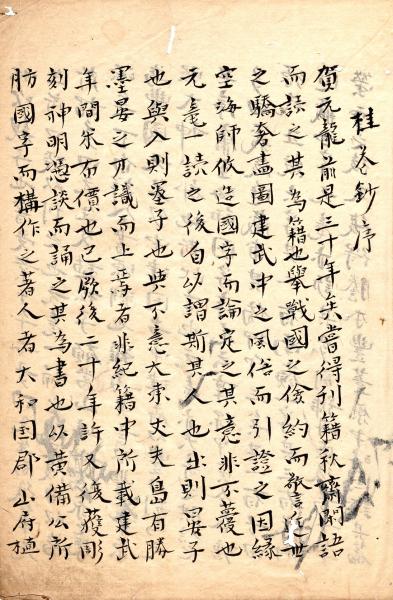 桂苍鈔序
賀元龍前是三十年矣嘗得刊籍秋齋閒語
而読之其為籍也挙戦国之倹約而警近世
之驕奢尽図建武中之風俗而引證之因縁
空海師攸造国字而論定之其意非不蔓也
元毫一読之後自以謂斯其人也出則晏子
也與入則晏子也與不意大東丈夫島有勝
墨晏之才識而上焉者非紀籍中所載建武
年間朱布價也已厥後二十年許又復獲彫
刻神明憑談而誦之其為書也以黄備公所
肪國字而構作之著人者大和国郡山府植